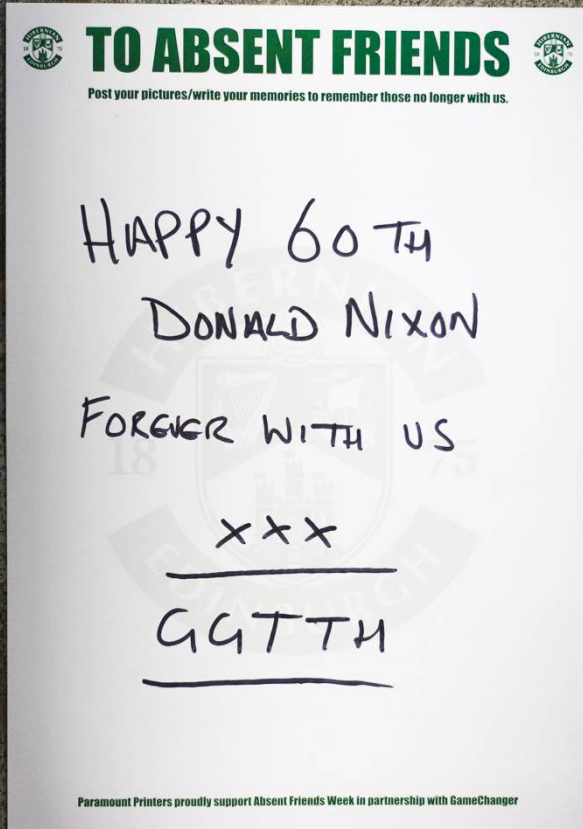 TO ABSENT FRIENDS
Post your pictures/write your memories to remember those no longer with us.
HAPPY 60TH
DONALD NIXON
FOREVER WITH US
XXX
GGTTH
HIBERNIAN
18 75
EDINBURGH
Paramount Printers proudly support Absent Friends Week in partnership with GameChanger